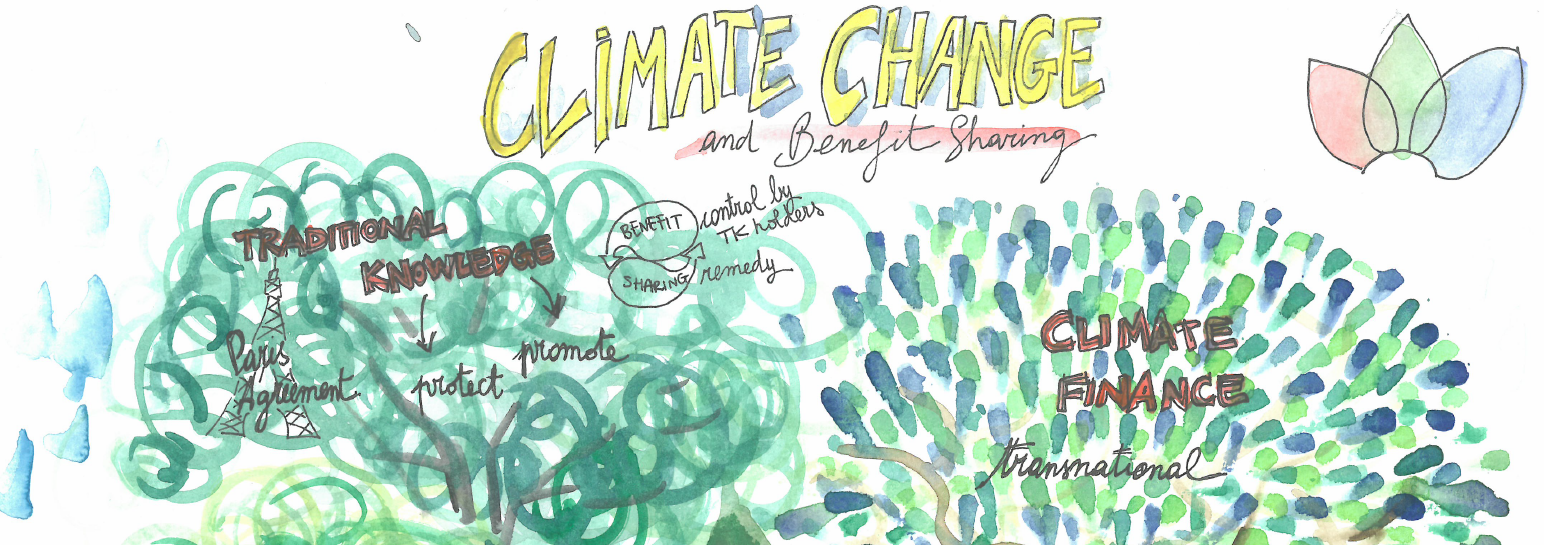 CLIMATE CHANGE
and Benefit Sharing
TRADITIONAL
KNOWLEDGE
BENEFIT
SHARING
control by
TK holders
remedy
Paris
Agreement
protect
promote
CLIMATE
FINANCE
transnational